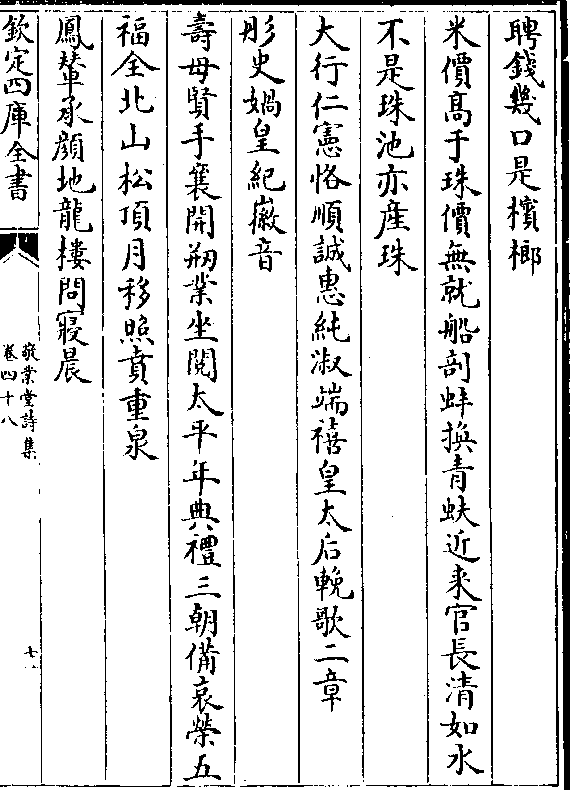 聘錢幾口是檳榔
米價髙于珠價無就船剖蚌換青蚨近來官長清如水
不是珠池亦産珠
大行仁憲恪順誠惠純淑端禧皇太后輓歌二章
彤史媧皇紀徽音
壽母賢手襄開剏業坐閱太平年典禮三朝備哀榮五
福全北山松頂月移照賁重泉
鳳輦承顔地龍樓問寢晨
欽定四庫全書
敬業堂詩集
卷四十八